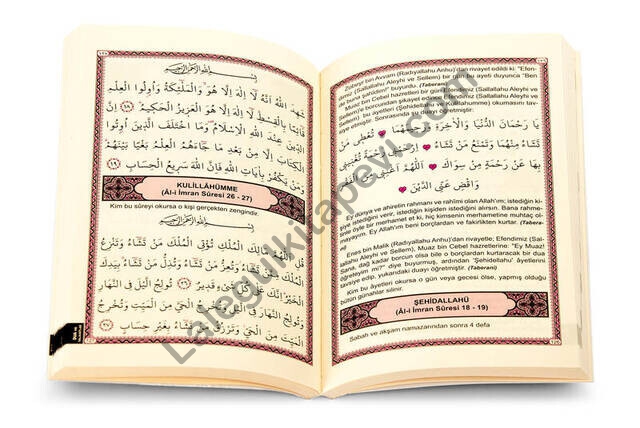 Zübeyr bin Avvam (Radıyallahu Anhu)'dan rivayet edildi ki: "Efen-
dimiz (Sallallahu Aleyhi ve Sellem) bu ayeti duyunca "Ben
de buna şahidim" buyurdu. (Taberani)
Muaz bin Cebel hazretleri bir gün Efendimiz (Sallallahu Aleyhi ve
Sellem)'e borcundan şikayet
bu ayetleri (Şehidellahu ve Kulillahumme) okumasını tav-
siye etmiştir. Sonrasında şu duayı öğretmiştir:
يَا رَحْمَانَ الدُّنْيَا وَالْاٰخِرَةِ وَرَحِيمَهُمَا تُعْطِى مَنْ
تَشَاءُ مِنْهُمَا وَتَمْنَعُ مَنْ تَشَاءُ اِرْحَمْنِى رَحْمَةً تُغْنِينِى
بِهَا عَنْ رَحْمَةِ مَنْ سِوَاكَ اَللّٰهُمَّ اَغْنِنِى
وَاقْضِ عَنِّى الدَّيْنَ
Ey dünya ve ahiretin rahmanı ve rahîmi olan Allah'ım; istediğin ki-
şiye istediğini verir, istediğin kişiden istediğini alırsın. Bana rahme-
tinle öyle bir merhamet et ki, hiç kimsenin merhametine muhtaç ol-
mayayım. Ey Allah'ım beni borçlardan ve fakirlikten kurtar. (Taberani)
Enes bin Malik (Radıyallahu Anhu)'dan rivayetle; Efendimiz (Sal-
lallahu Aleyhi ve Sellem), Muaz bin Cebel hazretlerine: "Ey Muaz!
Sana, dağ kadar borcun olsa bile o borçlardan kurtaracak bir dua
öğreteyim mi?" diye buyurmuş, ardından "Şehidellahu" âyetlerini
tavsiye edip, yukarıdaki duayı öğretmiştir. (Taberani)
Kim bu âyetleri okursa o gün veya gecesi ölse, yapmış olduğu
bütün günahlar silinir.
ŞEHİDALLAHÜ
(Âl-i İmran Sûresi 18 - 19)
Sabah ve akşam namazlarından sonra 4 defa
بِسْمِ اللّٰهِ الرَّحْمٰنِ الرَّحِيمِ
شَهِدَ اللّٰهُ اَنَّهُ لَا اِلٰهَ اِلَّا هُوَ وَالْمَلٰئِكَةُ وَاُولُوا الْعِلْمِ
قَائِمًا بِالْقِسْطِ لَا اِلٰهَ اِلَّا هُوَ الْعَزِيزُ الْحَكِيمُ ﴿١٨﴾ اِنَّ
الدِّينَ عِنْدَ اللّٰهِ الْاِسْلَامُ وَمَا اخْتَلَفَ الَّذِينَ اُوتُوا
الْكِتَابَ اِلَّا مِنْ بَعْدِ مَا جَاءَهُمُ الْعِلْمُ بَغْيًا بَيْنَهُمْ
وَمَنْ يَكْفُرْ بِاٰيَاتِ اللّٰهِ فَاِنَّ اللّٰهَ سَرِيعُ الْحِسَابِ ﴿١٩﴾
KULİLLÂHÜMME
(Âl-i İmran Sûresi 26 - 27)
Kim bu sûreyi okursa o kişi gerçekten zengindir.
بِسْمِ اللّٰهِ الرَّحْمٰنِ الرَّحِيمِ
قُلِ اللّٰهُمَّ مَالِكَ الْمُلْكِ تُؤْتِى الْمُلْكَ مَنْ تَشَاءُ وَتَنْزِعُ
الْمُلْكَ مِمَّنْ تَشَاءُ وَتُعِزُّ مَنْ تَشَاءُ وَتُذِلُّ مَنْ تَشَاءُ بِيَدِكَ
الْخَيْرُ اِنَّكَ عَلٰى كُلِّ شَىْءٍ قَدِيرٌ ﴿٢٦﴾ تُولِجُ الَّيْلَ فِى النَّهَارِ
وَتُولِجُ النَّهَارَ فِى الَّيْلِ وَتُخْرِجُ الْحَىَّ مِنَ الْمَيِّتِ وَتُخْرِجُ
الْمَيِّتَ مِنَ الْحَىِّ وَتَرْزُقُ مَنْ تَشَاءُ بِغَيْرِ حِسَابٍ ﴿٢٧﴾
Lalegulkitapevi.com